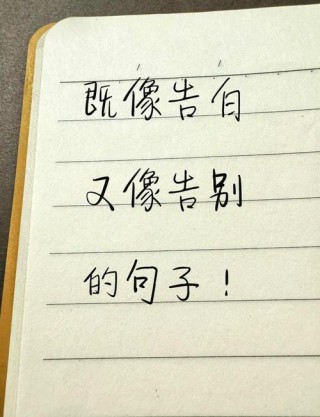 既像告白
又像告别
的句子！